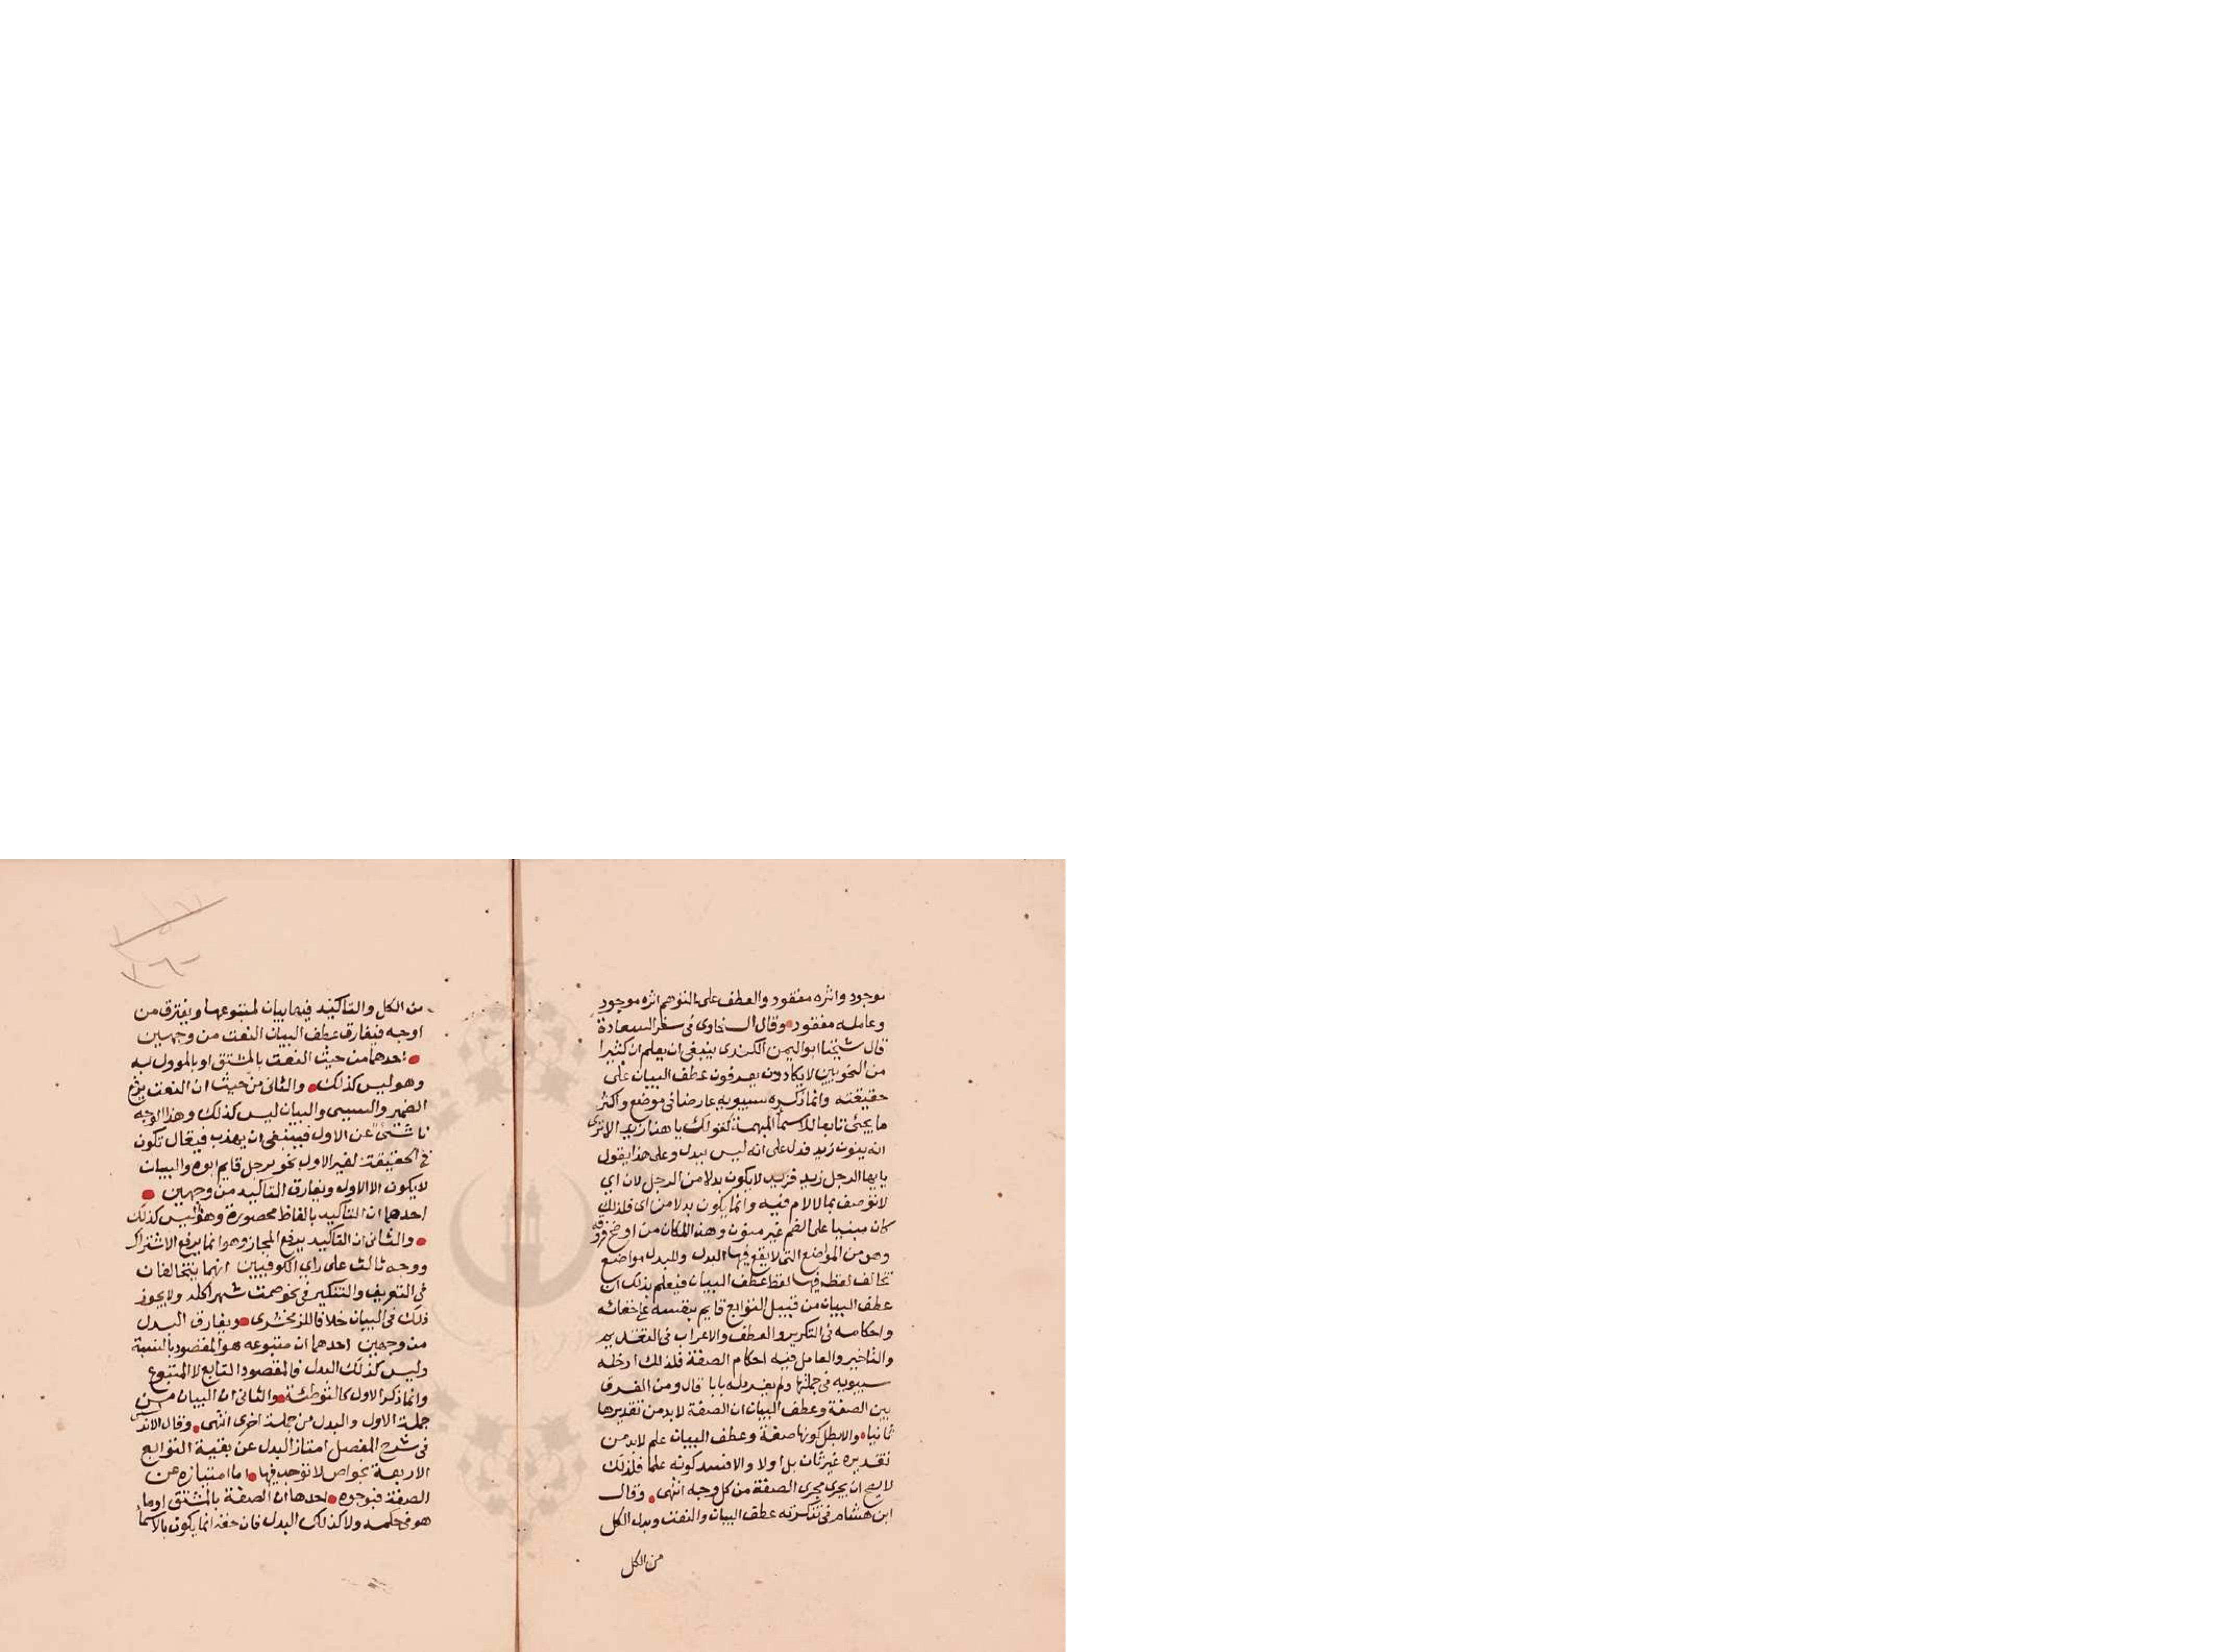 موجود واثره مفقود والعطف على التوهم اثره موجود
وعامله مفقود وقال السخاوى فى سفر السعادة
قال شيخنا ابو اليمن الكندى ينبغى ان يعلم ان كثيرا
من النحويين لا يكادون يعرفون عطف البيان على
حقيقته وانما ذكره سيبويه عارضا فى موضع واكثر
ما يجئ تابعا للاسما المبهمة كقولك يا هذا زيد الا ترى
انه ينون زيد فدل على انه ليس ببدل وعلى هذا يقول
يا ايها الرجل زيد فزيد لا يكون بدلا من الرجل لان اي
لا توصف بما لا لام فيه وانما يكون بدلا من اى فلذلك
كان مبنيا على الضم غير منون وهذا المكان من اوضح فروقه
وهو من المواضع التى لا يقع فيها البدل وللبدل مواضع
تخالف لفظه فيها لفظ عطف البيان فيعلم بذلك ان
عطف البيان من قبيل التوابع قايم بنفسه
واحكامه فى التكرير والعطف والاعراب فى التقديم
والتاخير والعامل فيه احكام الصفة فلذلك ادخله
سيبويه فى جملتها ولم يفرد له بابا قال ومن الفرق
بين الصفة وعطف البيان ان الصفة لا بد من تقديرها
ثانيا والا بطل كونها صفة وعطف البيان علم لا بد من
تقديره غير ثان بل اولا والا فسد كونه علما فلذلك
لا يصح ان يجرى مجرى الصفة من كل وجه انتهى وقال
ابن هشام فى تذكرته عطف البيان والنعت وبدل الكل
من الكل
من الكل والتاكيد فيها بيان لمتبوعها ويفترق من
اوجه فيفارق عطف البيان النعت من وجهين
احدهما من حيث النعت بالمشتق او بالموول به
وهو ليس كذلك والثانى من حيث ان النعت يرفع
الضمير والسببى والبيان ليس كذلك وهذا الوجه
ناشئ عن الاول فينبغى ان يهذب فيقال تكون
فى الحقيقة لغير الاول نحو برجل قايم ابوه والبيان
لا يكون الا الاول ويفارق التاكيد من وجهين
احدهما ان التاكيد بالفاظ محصورة وهو ليس كذلك
والثانى ان التاكيد يرفع المجاز وهو انما يرفع الاشتراك
ووجه ثالث على راى الكوفيين انهما يتخالفان
فى التعريف والتنكير فى نحو صمت شهرا كله ولا يجوز
ذلك فى البيان خلافا للزمخشرى ويفارق البدل
من وجهين احدهما ان متبوعه هو المقصود بالنسبة
وليس كذلك البدل فالمقصود التابع لا المتبوع
وانما ذكر الاول كالتوطئة والثانى ان البيان من
جملة الاول والبدل من جملة اخرى انتهى وقال الاندلسى
فى شرح المفصل امتاز البدل عن بقية التوابع
الاربعة بخواص لا توجد فيها اما امتيازه عن
الصفة فبوجوه احدها ان الصفة بالمشتق او ما
هو فى حكمه ولا كذلك البدل فان حقه انما يكون بالاسما